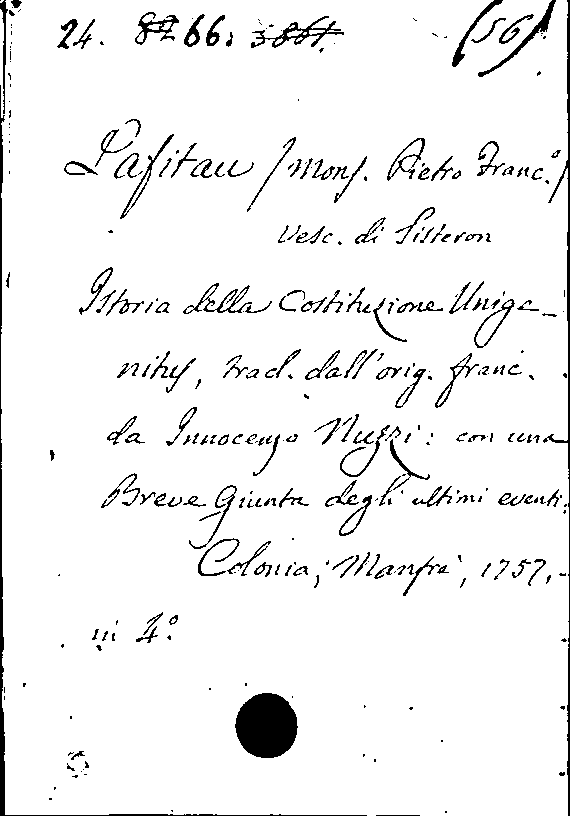 24. 8266. 3861. (56)
Lafitau /Mons. Pietro Franc.º/
Vesc. di Sisteron
Istoria della Costituzione Unige-
nitus, trad. dall'orig. franc.
da Innocenzo Nuzzi: con una
Breve Giunta degli ultimi eventi.
Colonia, Manfrè, 1757,-
in 4º